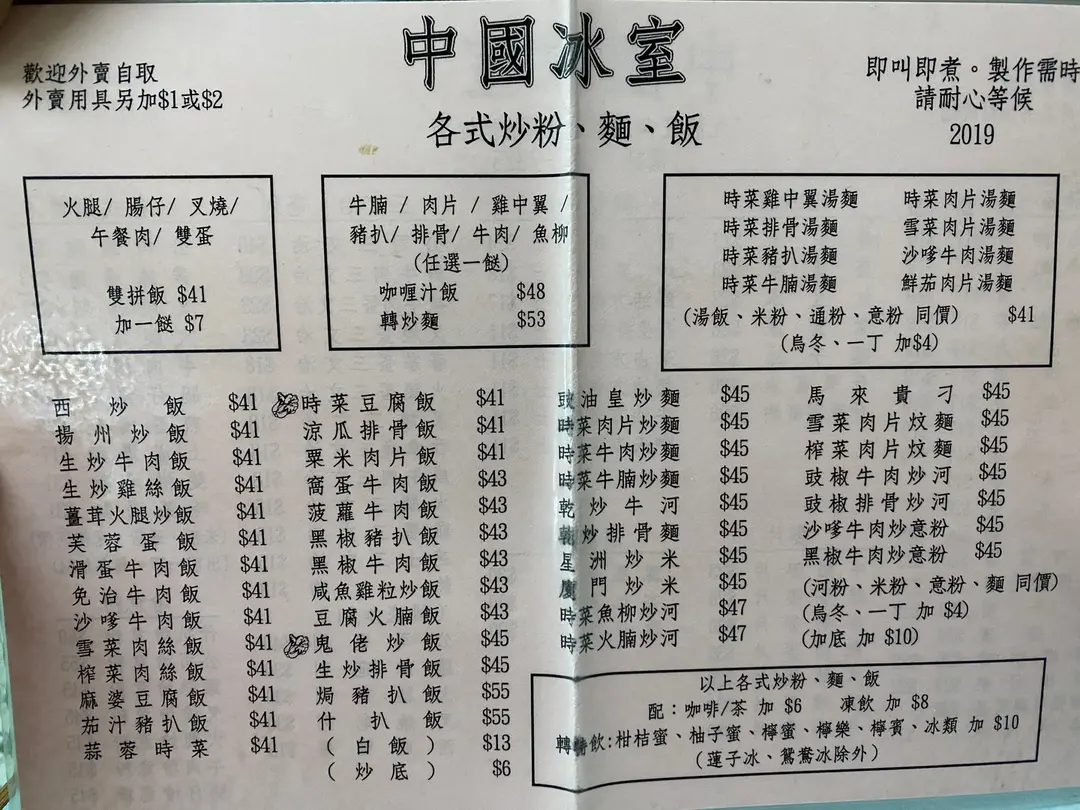 中國冰室
歡迎外賣自取
外賣用具另加$1或$2
各式炒粉、麵、飯
即叫即煮。製作需時
請耐心等候
2019
火腿/ 腸仔/ 叉燒/
午餐肉/ 雙蛋
雙拼飯 $41
加一餸 $7
牛腩 / 肉片 / 雞中翼 /
豬扒/ 排骨/ 牛肉/ 魚柳
(任選一餸)
咖喱汁飯 $48
轉炒麵 $53
時菜雞中翼湯麵 時菜肉片湯麵
時菜排骨湯麵 雪菜肉片湯麵
時菜豬扒湯麵 沙嗲牛肉湯麵
時菜牛腩湯麵 鮮茄肉片湯麵
(湯飯、米粉、通粉、意粉 同價) $41
(烏冬、一丁 加$4)
西炒飯 $41
揚州炒飯 $41
生炒牛肉飯 $41
生炒雞絲飯 $41
薑茸火腿炒飯 $41
芙蓉蛋飯 $41
滑蛋牛肉飯 $41
免治牛肉飯 $41
沙嗲牛肉飯 $41
雪菜肉絲飯 $41
榨菜肉絲飯 $41
麻婆豆腐飯 $41
茄汁豬扒飯 $41
蒜蓉時菜 $41
時菜豆腐飯 $41
涼瓜排骨飯 $41
粟米肉片飯 $41
窩蛋牛肉飯 $43
菠蘿牛肉飯 $43
黑椒豬扒飯 $43
黑椒牛肉飯 $43
咸魚雞粒炒飯 $43
豆腐火腩飯 $43
鬼佬炒飯 $45
生炒排骨飯 $45
焗豬扒飯 $55
什扒飯 $55
(白飯) $13
(炒底) $6
豉油皇炒麵 $45
時菜肉片炒麵 $45
時菜牛肉炒麵 $45
時菜牛腩炒麵 $45
乾炒牛河 $45
乾炒排骨麵 $45
星洲炒米 $45
廈門炒米 $45
時菜魚柳炒河 $47
時菜火腩炒河 $47
馬來貴刁 $45
雪菜肉片炆麵 $45
榨菜肉片炆麵 $45
豉椒牛肉炒河 $45
豉椒排骨炒河 $45
沙嗲牛肉炒意粉 $45
黑椒牛肉炒意粉 $45
(河粉、米粉、意粉、麵 同價)
(烏冬、一丁 加 $4)
(加底 加 $10)
以上各式炒粉、麵、飯
配：咖啡/茶 加 $6 凍飲 加 $8
轉特飲:柑桔蜜、柚子蜜、檸蜜、檸樂、檸賓、冰類 加 $10
(蓮子冰、鴛鴦冰除外)